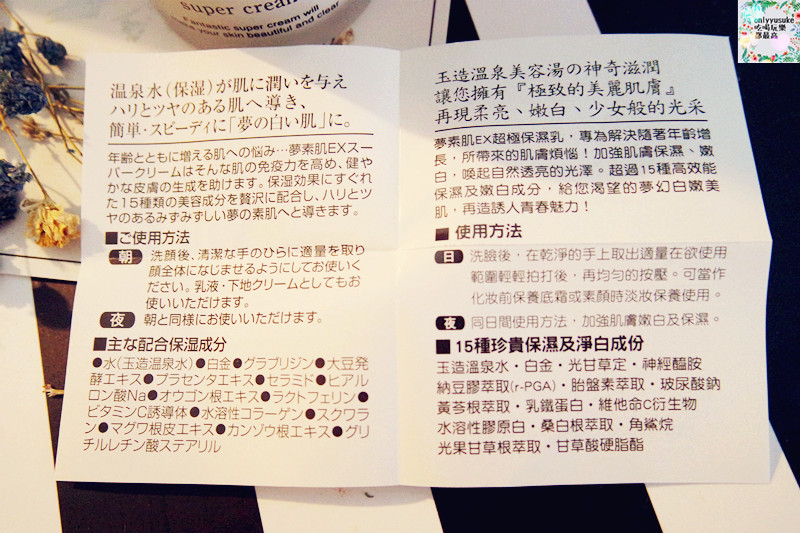 super cream
Fantastic super cream will
make your skin beautiful and clear
onlyyusuke
吃喝玩樂
部最高
温泉水(保湿)が肌に潤いを与え
ハリとツヤのある肌へ導き、
簡単・スピーディに「夢の白い肌」に。
年齢とともに増える肌への悩み…夢素肌EXスー
パークリームはそんな肌の免疫力を高め、健や
かな皮膚の生成を助けます。保湿効果にすぐれ
た15種類の美容成分を贅沢に配合し、ハリとツ
ヤのあるみずみずしい夢の素肌へと導きます。
■ご使用方法
朝 洗顔後、清潔な手のひらに適量を取り
顔全体になじませるようにしてお使いく
ださい。乳液・下地クリームとしてもお
使いいただけます。
夜 朝と同様にお使いいただけます。
■主な配合保湿成分
●水(玉造温泉水)●白金●グラブリジン●大豆発
酵エキス●プラセンタエキス●セラミド●ヒアル
ロン酸Na●オウゴン根エキス●ラクトフェリン●
ビタミンC誘導体●水溶性コラーゲン●スクワラ
ン●マグワ根皮エキス●カンゾウ根エキス●グリ
チルレチン酸ステアリル
玉造溫泉美容湯の神奇滋潤
讓您擁有『極致的美麗肌膚』
再現柔亮、嫩白、少女般的光采
夢素肌EX超極保濕乳，專為解決隨著年齡增
長，所帶來的肌膚煩惱！加強肌膚保濕、嫩
白，喚起自然透亮的光澤。超過15種高效能
保濕及嫩白成分，給您渴望的夢幻白嫩美
肌，再造誘人青春魅力！
■ 使用方法
日 洗臉後，在乾淨的手上取出適量在欲使用
範圍輕輕拍打後，再均勻的按壓。可當作
化妝前保養底霜或素顏時淡妝保養使用。
夜 同日間使用方法，加強肌膚嫩白及保濕。
■ 15種珍貴保濕及淨白成份
玉造溫泉水・白金・光甘草定・神經醯胺
納豆膠萃取(r-PGA)・胎盤素萃取・玻尿酸鈉
黃芩根萃取・乳鐵蛋白・維他命C衍生物
水溶性膠原白・桑白根萃取・角鯊烷
光果甘草根萃取・甘草酸硬脂酯